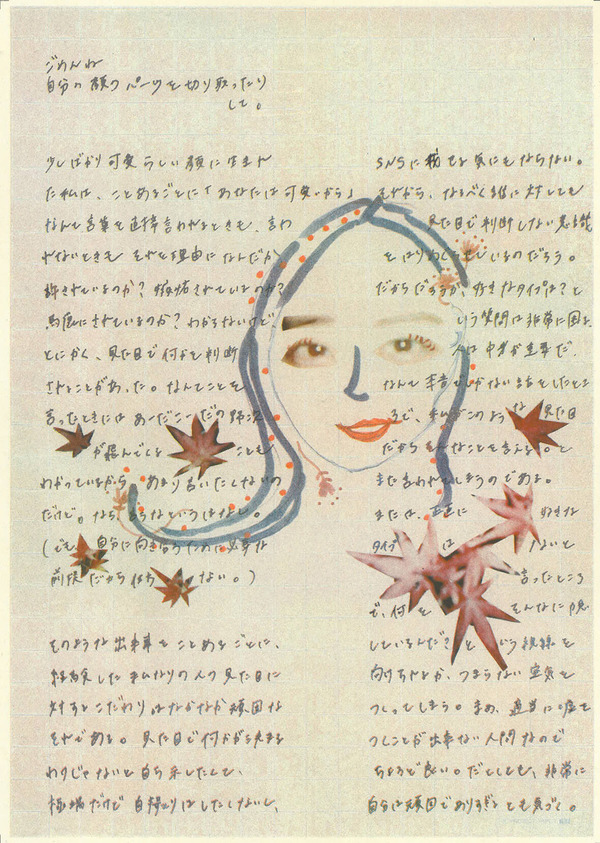 ごめんね
自分の顔のパーツを切り取ったり
して。
少しばかり可愛らしい顔に生まれ
た私は、ことあるごとに「あなたは可愛いから」
なんて言葉を直接言われるときも、言わ
れないときもそれを理由になんだか
許されているのか？嫉妬されているのか？
馬鹿にされているのか？わからないけど
とにかく、見た目で何かを判断
されることがあった。なんてことを
言ったときにはあーだこーだの野次
が飛んでくることも
わかっているからあまり言いたくないの
だけど。
（でも自分に向き合うために必要な
前段だから仕方ない。）
そのような出来事をことあるごとに、
経験した私なりの人の見た目に
対するこだわりはなかなか頑固な
それである。見た目で何かが決まる
わけじゃないと自ら示したくて、
極端だけど自撮りはしたくないし、
SNSに載せる気にもならない。
それから、なるべく誰に対しても
見た目で判断しない
をはりめぐらせているのだろう。
だからだろうが、好きなタイプは？と
いう質問は非常に困る。
人は中身が全てだ、
なんて本音でしかない
ろで、私がこのような見た目
だからそんなことを言える。と
また言われてしまうのである。
または、正直に 好きな
タイプ は ないと
言ったところ
で、何を そんなに隠
しているんだ？という視線を
向けられるか、つまらない空気を
つくってしまう。まあ、適当に嘘を
つくことが出来ない人間なので
ちょうど良い。だとしても、非常に
自分は頑固でありすぎるとも気づく。